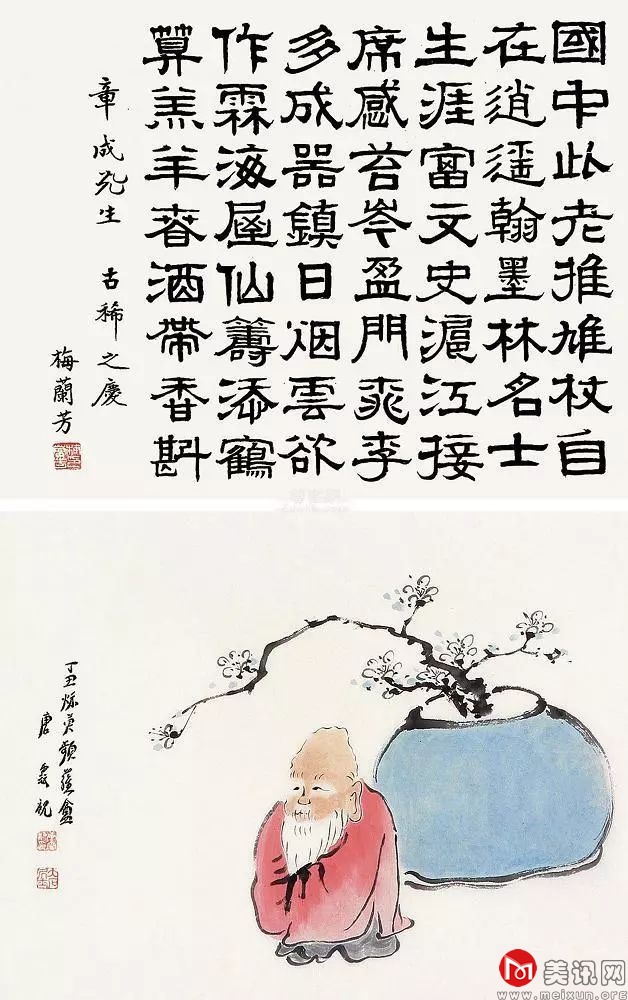 國中此老推鳩杖自
在逍遥翰墨林名士
生涯富文史滬江接
席感苔岑盈門桃李
多成器鎮日烟雲欲
作霖海屋仙籌添鶴
算羔羊春酒帶香斟
章成先生 古稀之慶
梅蘭芳
丁丑
唐 祝
美讯网
www.meixun.org